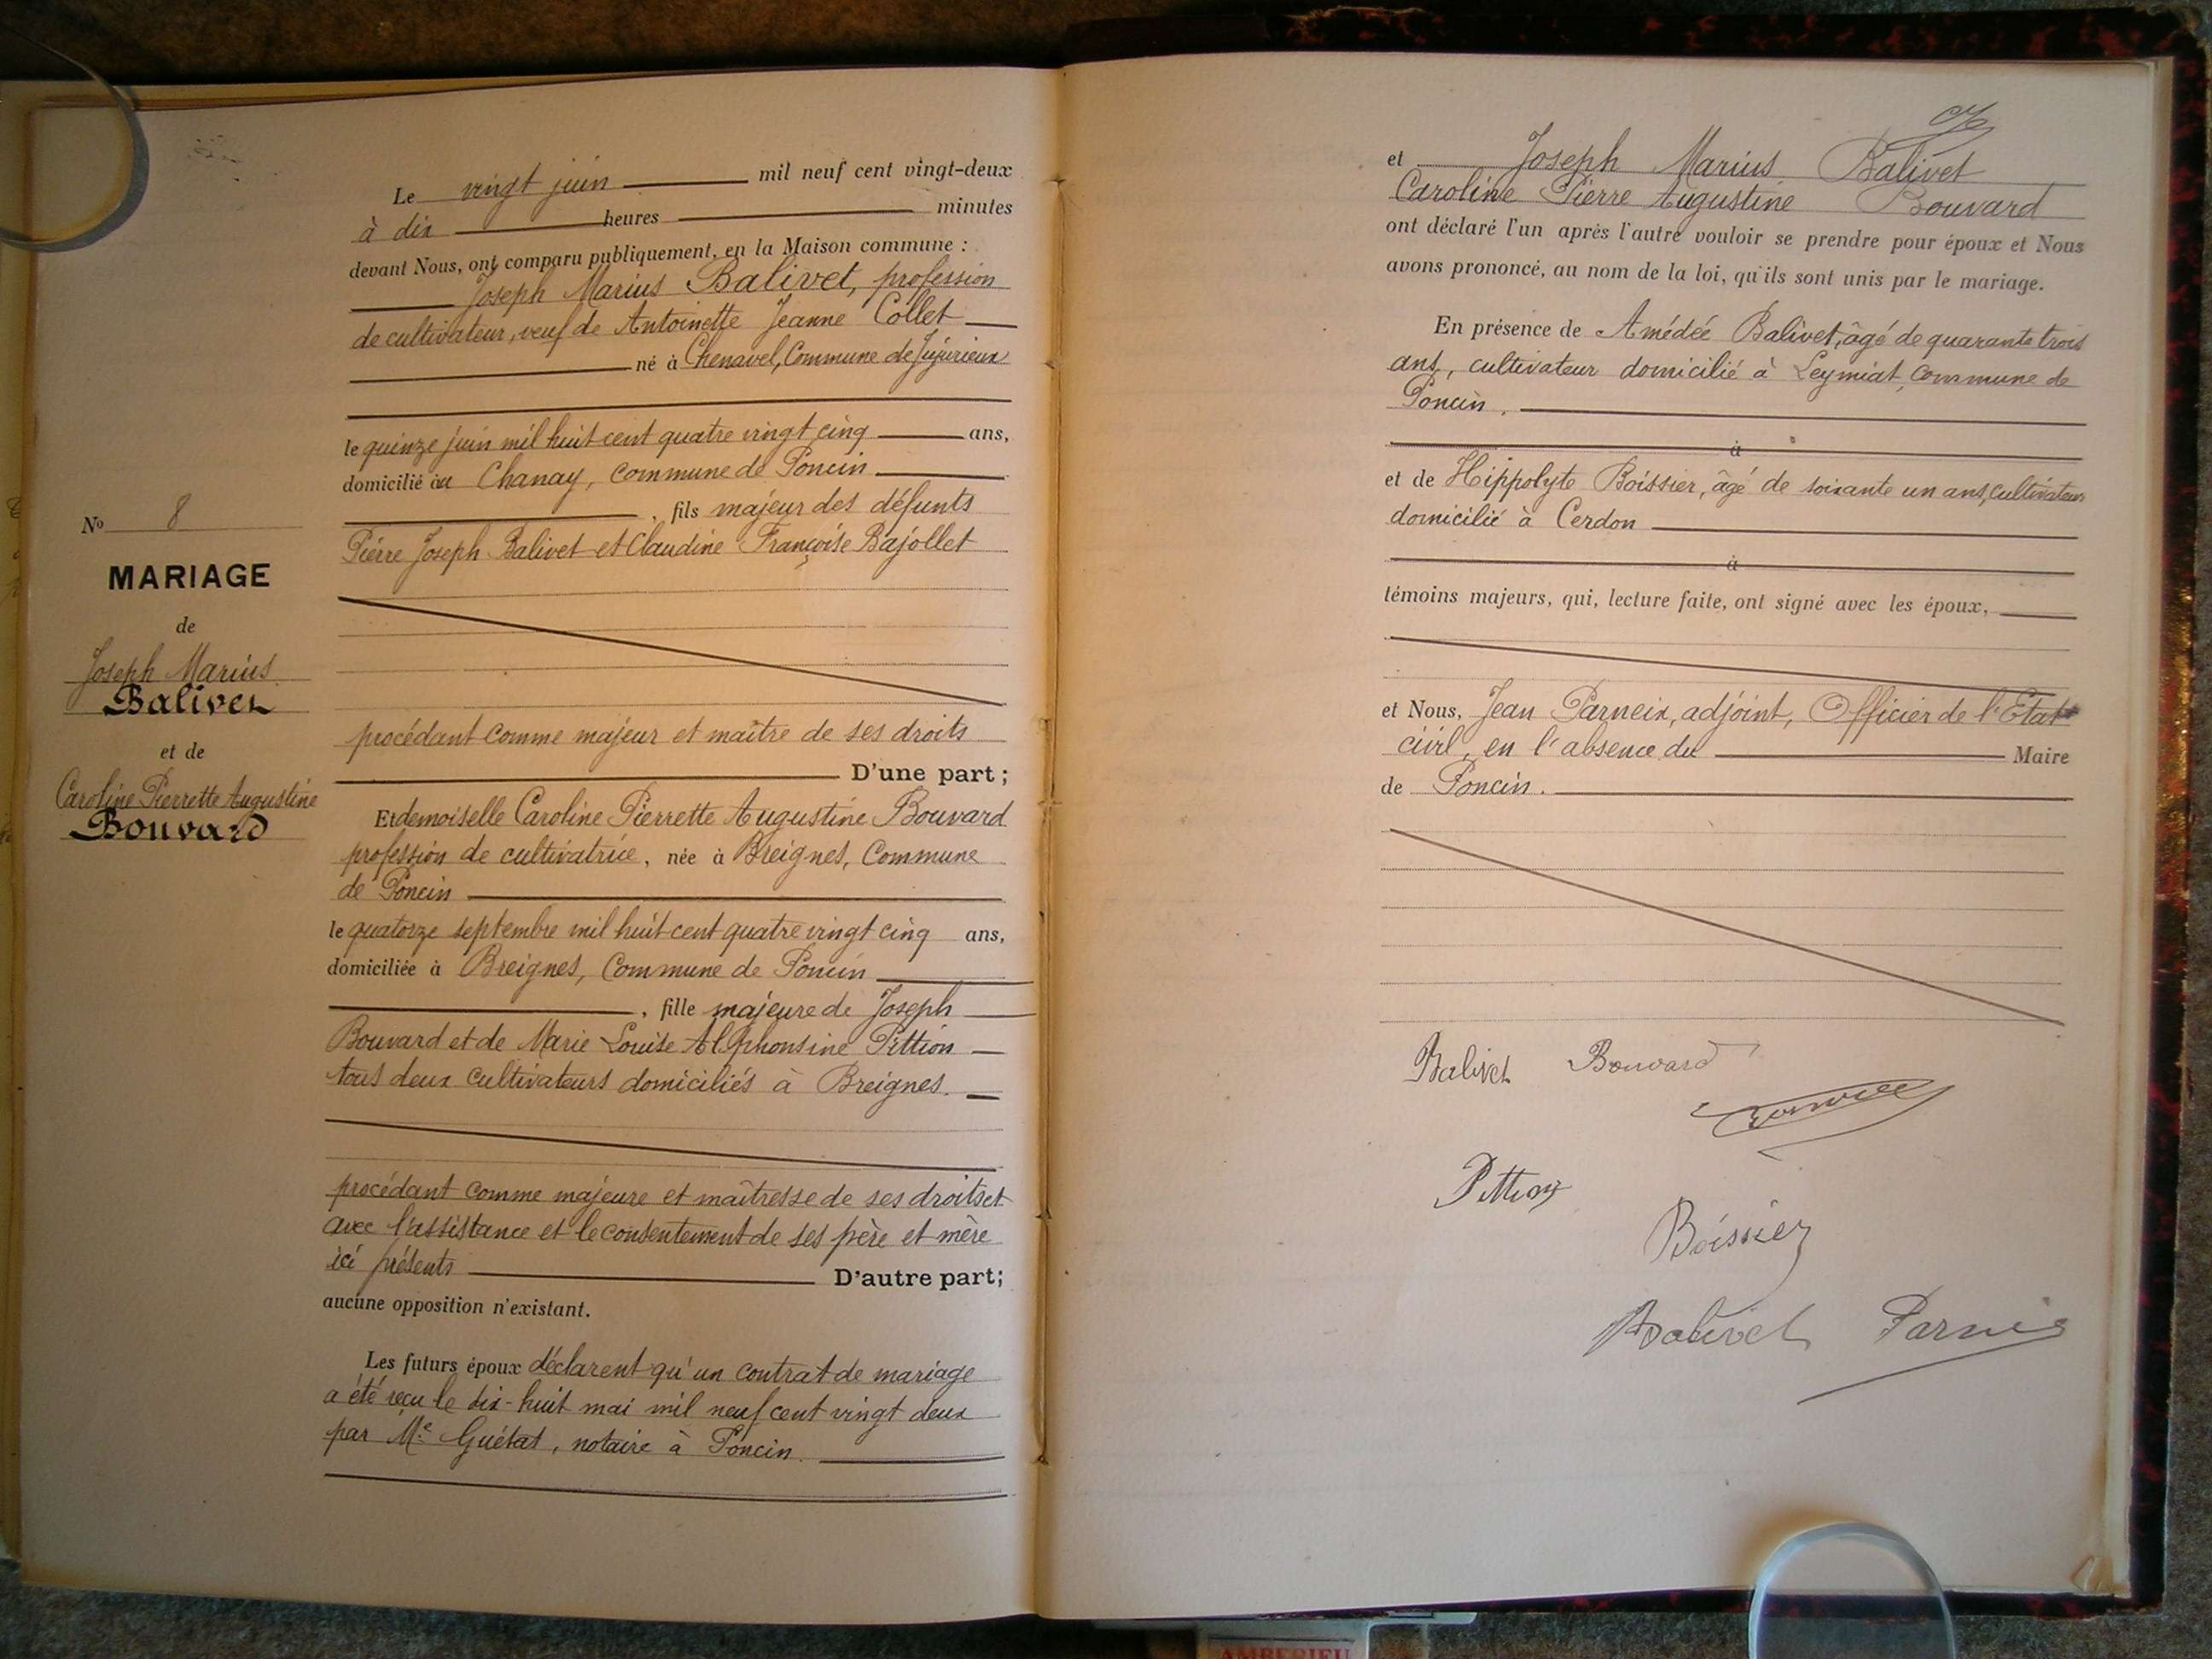 Le vingt juin mil neuf cent vingt-deux
à dix heures minutes
devant Nous, ont comparu publiquement, en la Maison commune :
Joseph Marius Balivet, profession
de cultivateur, veuf de Antoinette Jeanne Collet
né à Chenavel, Commune de Jujurieux
le quinze juin mil huit cent quatre vingt cinq ans,
domicilié au Chanay, Commune de Poncin
, fils majeur des défunts
Pierre Joseph Balivet et Claudine Françoise Bajollet
procédant comme majeur et maître de ses droits
D'une part ;
Et demoiselle Caroline Pierrette Augustine Bouvard
profession de cultivatrice, née à Breignes, Commune
de Poncin
le quatorze septembre mil huit cent quatre vingt cinq ans,
domiciliée à Breignes, Commune de Poncin
, fille majeure de Joseph
Bouvard et de Marie Louise Alphonsine Pittion
tous deux cultivateurs domiciliés à Breignes.
procédant comme majeure et maîtresse de ses droits et
avec l'assistance et le consentement de ses père et mère
ici présents D'autre part;
aucune opposition n'existant.
Les futurs époux déclarent qu'un contrat de mariage
a été reçu le dix-huit mai mil neuf cent vingt deux
par Me Guétat, notaire à Poncin.
No 8
MARIAGE
de
Joseph Marius
Balivet
et de
Caroline Pierrette Augustine
Bouvard
et Joseph Marius Balivet
Caroline Pierre Augustine Bouvard
ont déclaré l'un après l'autre vouloir se prendre pour époux et Nous
avons prononcé, au nom de la loi, qu'ils sont unis par le mariage.
En présence de Amédée Balivet, âgé de quarante trois
ans, cultivateur domicilié à Leymiat, Commune de
Poncin.
à
et de Hippolyte Boissier, âgé de soixante un ans, cultivateur
domicilié à Cerdon
à
témoins majeurs, qui, lecture faite, ont signé avec les époux,
et Nous, Jean Parneix, adjoint, Officier de l'Etat
civil, en l'absence du Maire
de Poncin.
Balivet Bouvard
Pittion
Boissier
Balivet
AMBERIEU